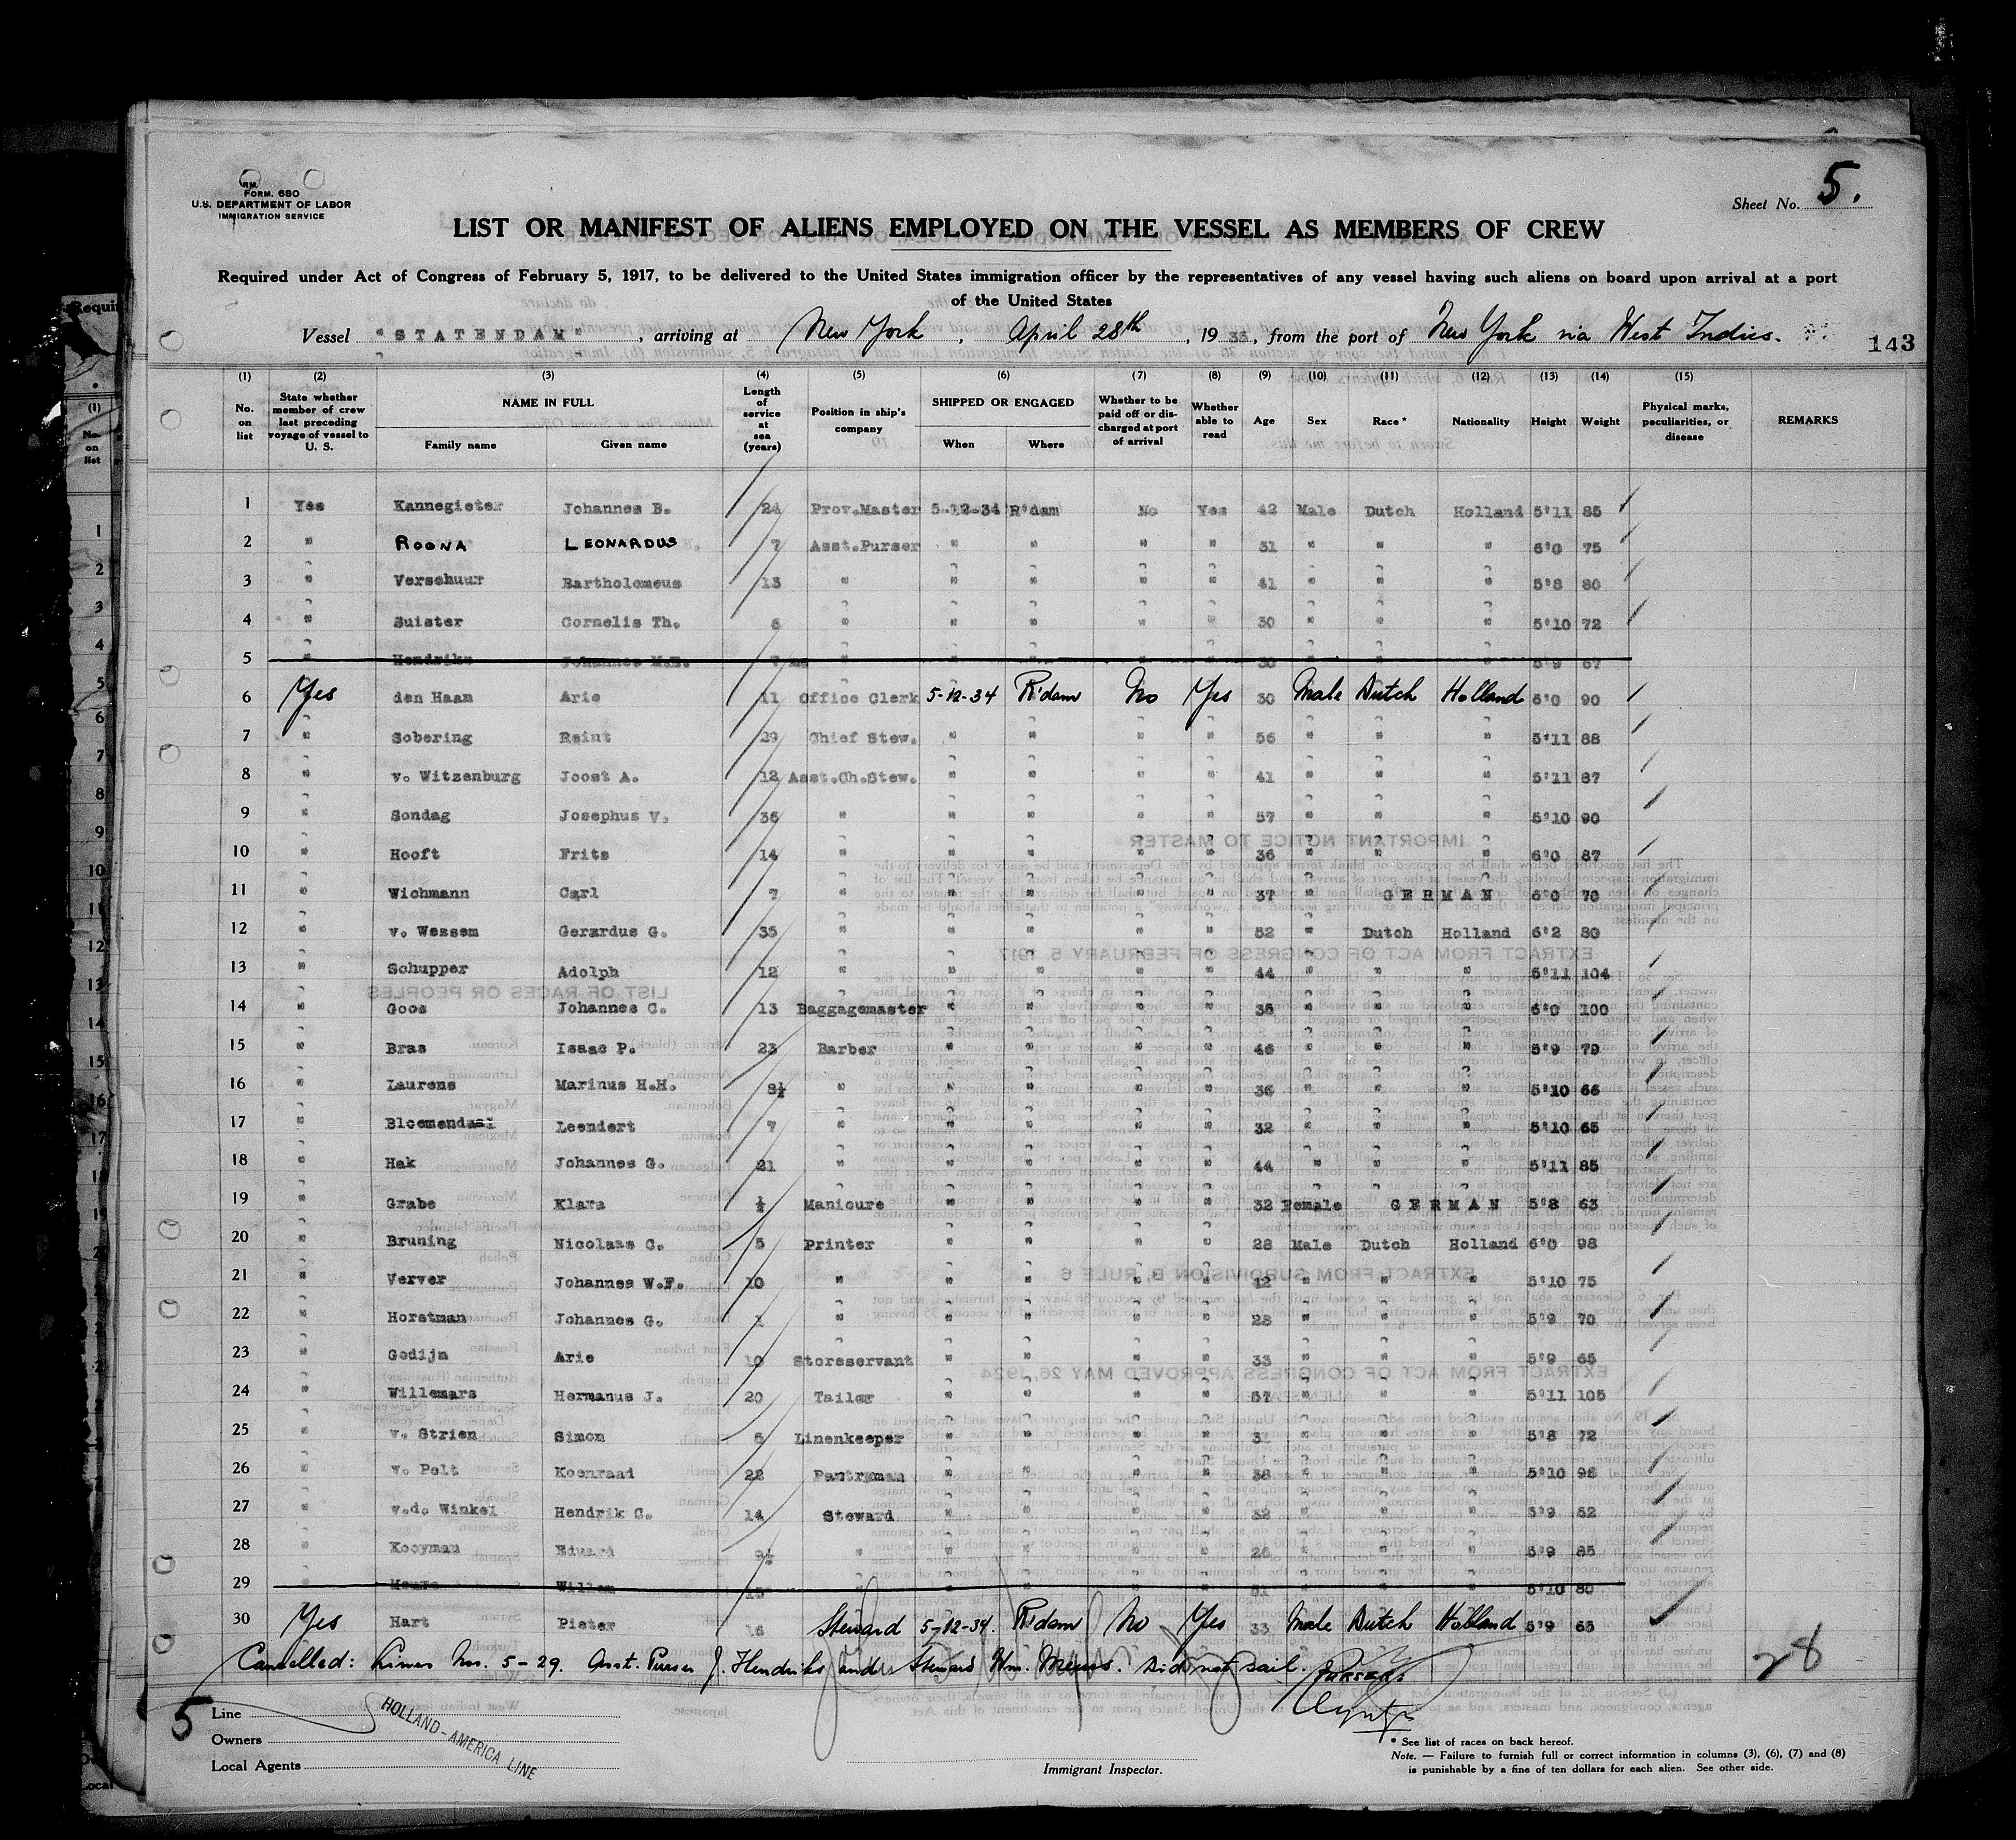 Form. 680
U.S. DEPARTMENT OF LABOR
IMMIGRATION SERVICE
Sheet No. 5.
LIST OR MANIFEST OF ALIENS EMPLOYED ON THE VESSEL AS MEMBERS OF CREW
Required under Act of Congress of February 5, 1917, to be delivered to the United States immigration officer by the representatives of any vessel having such aliens on board upon arrival at a port
of the United States
Vessel "STATENDAM", arriving at New York, April 28th, 1935, from the port of New York via West Indies. 143
(1) No. on list (2) State whether member of crew last preceding voyage of vessel to U. S. (3) NAME IN FULL Family name Given name (4) Length of service at sea (years) (5) Position in ship's company (6) SHIPPED OR ENGAGED When Where (7) Whether to be paid off or discharged at port of arrival (8) Whether able to read (9) Age (10) Sex (11) Race* (12) Nationality (13) Height (14) Weight (15) Physical marks, peculiarities, or disease REMARKS
1 Yes Kannegieter Johannes B. 24 Prov.Master 5-12-34 R'dam No Yes 42 Male Dutch Holland 5'11 85
2 " ROONA LEONARDUS 7 Asst.Purser " " " " 31 " " " 6'0 75
3 " Verschuur Bartholomeus 13 " " " " " 41 " " " 5'8 80
4 " Suister Cornelis Th. 6 " " " " " 30 " " " 5'10 72
5 " Hendriks Johannes M.H. 7 " 30 " " " 5'9 67
6 Yes den Haan Arie 11 Office Clerk 5-12-34 R'dam No Yes 30 Male Dutch Holland 6'0 90
7 " Sobering Reint 29 Chief Stew. " " " " 56 " " " 5'11 88
8 " v. Witzenburg Joost A. 12 Asst.Ch.Stew. " " " " 41 " " " 5'11 87
9 " Sondag Josephus V. 36 " " " " " 57 " " " 5'10 90
10 " Hooft Frits 14 " " " " " 36 " " " 6'0 87
11 " Wichmann Carl 7 " " " " " 37 " GERMAN 6'0 70
12 " v. Wessem Gerardus G. 35 " " " " " 52 " Dutch Holland 6'2 80
13 " Schupper Adolph 12 " " " " " 44 " " " 5'11 104
14 " Goos Johannes C. 13 Baggagemaster " " " " 35 " " " 6'0 100
15 " Bras Isaac P. 23 Barber " " " " 46 " " " 5'9 79
16 " Laurens Marinus H.H. 8½ " " " " " 36 " " " 5'10 66
17 " Bloemendaal Leendert 7 " " " " " 32 " " " 5'10 65
18 " Hak Johannes G. 21 " " " " " 44 " " " 5'11 85
19 " Grabe Klara ½ Manicure " " " " 32 Female GERMAN 5'8 63
20 " Bruning Nicolaas C. 5 Printer " " " " 28 Male Dutch Holland 6'0 98
21 " Verver Johannes W.F. 10 " " " " " 42 " " " 5'10 75
22 " Horstman Johannes G. 1 " " " " " 28 " " " 5'9 70
23 " Godijn Arie 10 Storeservant " " " " 33 " " " 5'9 65
24 " Willemars Hermanus J. 20 Tailor " " " " 57 " " " 5'11 105
25 " v. Strien Simon 5 Linenkeeper " " " " 31 " " " 5'8 72
26 " v. Pelt Koenraad 22 Pantryman " " " " 38 " " " 5'10 98
27 " v.d. Winkel Hendrik C. 14 Steward " " " " 32 " " " 5'9 52
28 " Kooyman Eduard 9½ " " " " " 26 " " " 5'9 85
29 " Willem 15 " " " " " 51 " " " 5'10 80
30 Yes Hart Pieter 16 Steward 5-12-34. R'dam No Yes 33 Male Dutch Holland 5'9 65
Cancelled: Lines No. 5-29. Asst. Purser J. Hendriks and Steward Wm. did not sail. PURSER 28
5 Line HOLLAND-AMERICA LINE
Owners
Local Agents
Immigrant Inspector.
* See list of races on back hereof.
Note. — Failure to furnish full or correct information in columns (3), (6), (7) and (8)
is punishable by a fine of ten dollars for each alien. See other side.